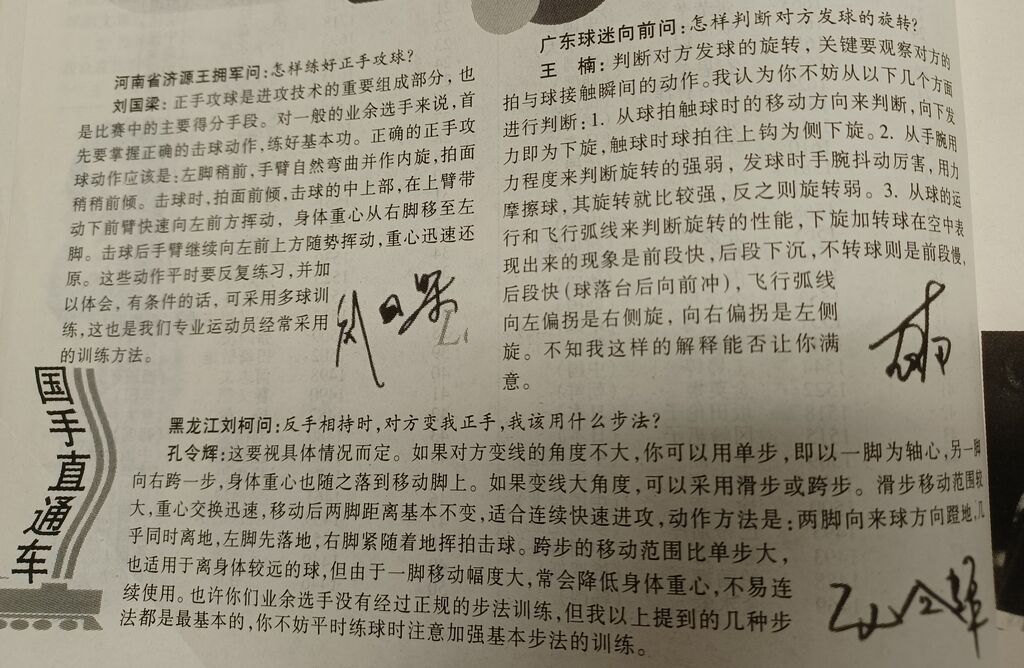 河南省济源王拥军问:怎样练好正手攻球?
刘国梁:正手攻球是进攻技术的重要组成部分,也
是比赛中的主要得分手段。对一般的业余选手来说,首
先要掌握正确的击球动作,练好基本功。正确的正手攻
球动作应该是:左脚稍前,手臂自然弯曲并作内旋,拍面
稍稍前倾。击球时,拍面前倾,击球的中上部,在上臂带
动下前臂快速向左前方挥动,身体重心从右脚移至左
脚。击球后手臂继续向左前上方随势挥动,重心迅速还
原。这些动作平时要反复练习,并加
以体会,有条件的话,可采用多球训
练,这也是我们专业运动员经常采用
的训练方法。
广东球迷向前问:怎样判断对方发球的旋转?
王 楠:判断对方发球的旋转,关键要观察对方的
拍与球接触瞬间的动作。我认为你不妨从以下几个方面
进行判断:1. 从球拍触球时的移动方向来判断,向下发
力即为下旋,触球时球拍往上钩为侧下旋。2. 从手腕用
力程度来判断旋转的强弱,发球时手腕抖动厉害,用力
摩擦球,其旋转就比较强,反之则旋转弱。3. 从球的运
行和飞行弧线来判断旋转的性能,下旋加转球在空中表
现出来的现象是前段快,后段下沉,不转球则是前段慢,
后段快(球落台后向前冲),飞行弧线
向左偏拐是右侧旋,向右偏拐是左侧
旋。不知我这样的解释能否让你满
意。
国手直通车
黑龙江刘柯问:反手相持时,对方变我正手,我该用什么步法?
孔令辉:这要视具体情况而定。如果对方变线的角度不大,你可以用单步,即以一脚为轴心,另一脚
向右跨一步,身体重心也随之落到移动脚上。如果变线大角度,可以采用滑步或跨步。滑步移动范围较
大,重心交换迅速,移动后两脚距离基本不变,适合连续快速进攻,动作方法是:两脚向来球方向蹬地,几
乎同时离地,左脚先落地,右脚紧随着地挥拍击球。跨步的移动范围比单步大,
也适用于离身体较远的球,但由于一脚移动幅度大,常会降低身体重心,不易连
续使用。也许你们业余选手没有经过正规的步法训练,但我以上提到的几种步
法都是最基本的,你不妨平时练球时注意加强基本步法的训练。